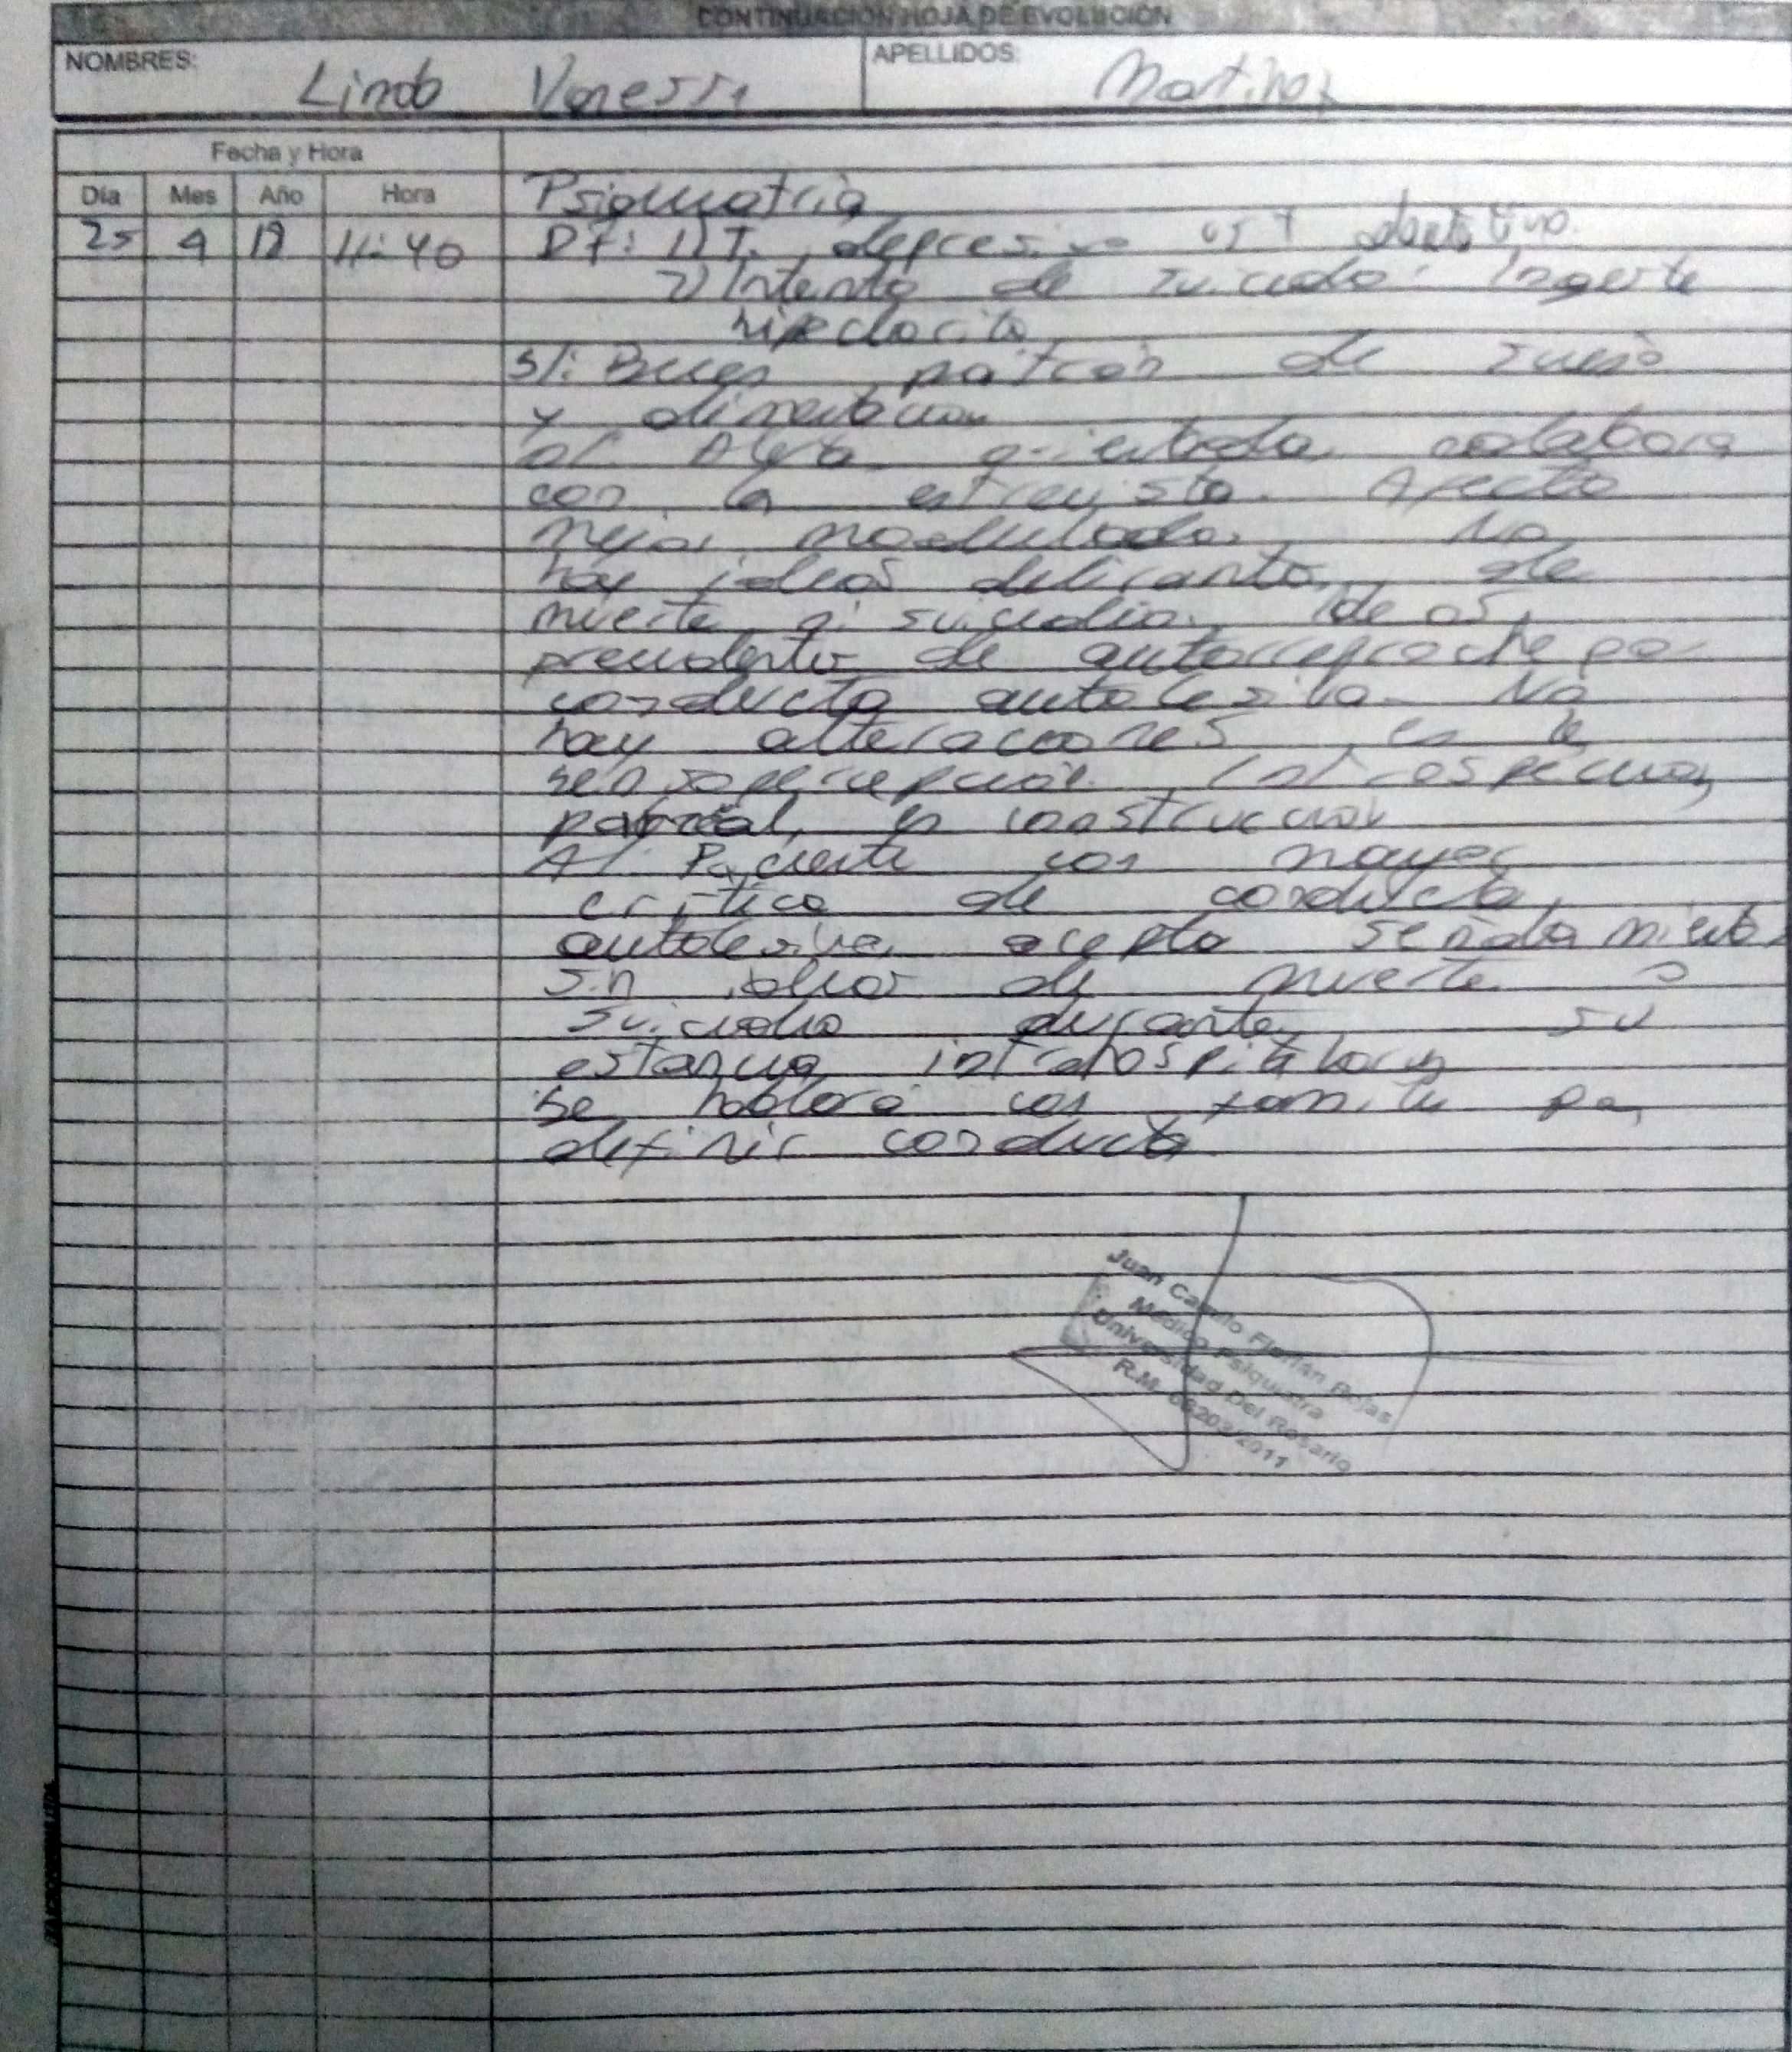 CONTINUACIÓN HOJA DE EVOLUCIÓN
NOMBRES: Linda Vanessa APELLIDOS: Martinez
Fecha y Hora
Día Mes Año Hora Psiquiatría
25 9 11:40 1) T. depresivo
2) Intento de suicidio: Ingesta
hipoclorito
S/: Buen patrón de sueño
y alimentación
O/: Alerta orientada, colabora
con la entrevista. Afecto
mejor modulado. No
hay ideas delirantes, de
muerte ni suicidio. Ideas
prevalentes de autorreproche por
conducta autolesiva. No
hay alteraciones en la
sensopercepción. Introspección
parcial, en construcción
A/ Paciente con mayor
crítica de conducta
autolesiva, acepta señalamientos
sin ideas de muerte o
suicidio durante su
estancia intrahospitalaria
Se hablará con familia para
definir conducta
Juan Camilo Florián Rojas
Médico Psiquiatra
Universidad Del Rosario
R.M.